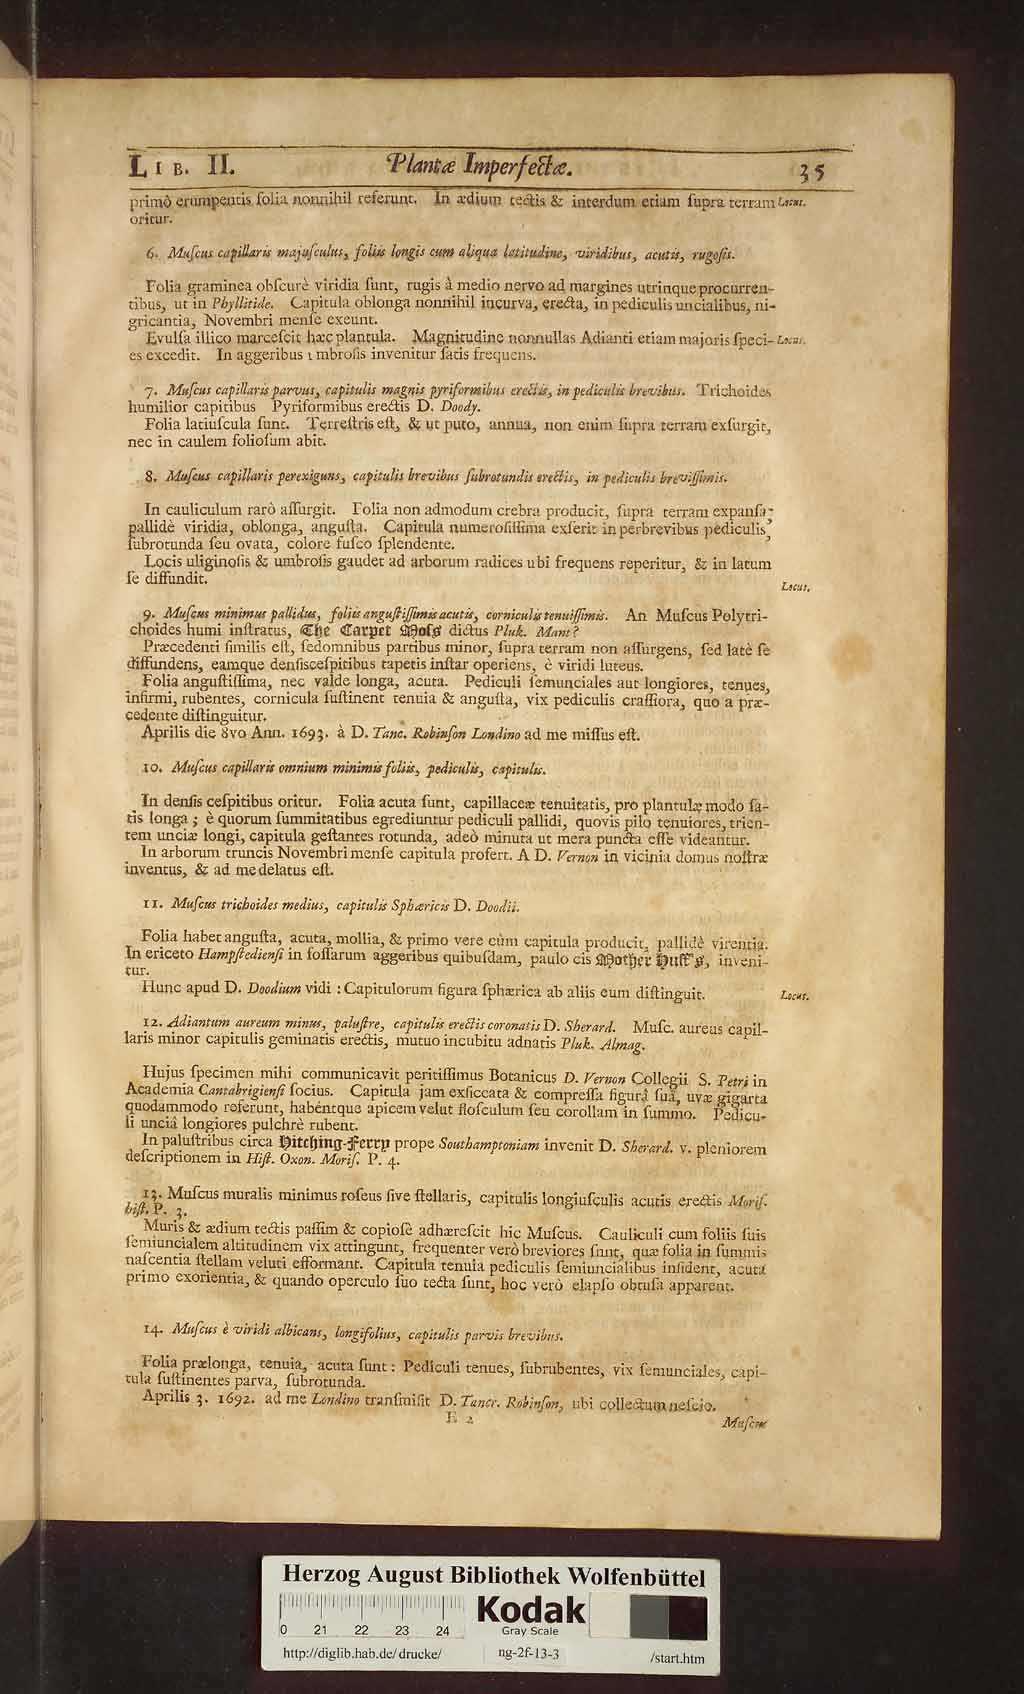 LIB. II. Plantæ Imperfectæ. 35
primò erumpentis folia nonnihil referunt. In ædium tectis & interdum etiam ſupra terram Locus.
oritur.
6. Muſcus capillaris majuſculus, foliis longis cum aliqua latitudine, viridibus, acutis, rugoſis.
Folia graminea obſcurè viridia ſunt, rugis à medio nervo ad margines utrinque procurren-
tibus, ut in Phyllitide. Capitula oblonga nonnihil incurva, erecta, in pediculis uncialibus, ni-
gricantia, Novembri menſe exeunt.
Evulſa illico marceſcit hæc plantula. Magnitudine nonnullas Adianti etiam majoris ſpeci- Locus.
es excedit. In aggeribus umbroſis invenitur ſatis frequens.
7. Muſcus capillaris parvus, capitulis magnis pyriformibus erectis, in pediculis brevibus. Trichoides
humilior capitibus Pyriformibus erectis D. Doody.
Folia latiuſcula ſunt. Terreſtris eſt, & ut puto, annua, non enim ſupra terram exſurgit,
nec in caulem folioſum abit.
8. Muſcus capillaris perexiguus, capitulis brevibus ſubrotundis erectis, in pediculis breviſſimis.
In cauliculum rarò aſſurgit. Folia non admodum crebra producit, ſupra terram expanſa,
pallidè viridia, oblonga, anguſta. Capitula numeroſiſſima exſerit in perbrevibus pediculis,
ſubrotunda ſeu ovata, colore fuſco ſplendente.
Locis uliginoſis & umbroſis gaudet ad arborum radices ubi frequens reperitur, & in latum
ſe diffundit.
Locus.
9. Muſcus minimus pallidus, foliis anguſtiſſimis acutis, corniculis tenuiſſimis. An Muſcus Polytri-
choides humi inſtratus, The Carpet Moſs dictus Pluk. Mant?
Præcedenti ſimilis eſt, ſedomnibus partibus minor, ſupra terram non aſſurgens, ſed latè ſe
diffundens, eamque denſiscefpitibus tapetis inſtar operiens, è viridi luteus.
Folia anguſtiſſima, nec valde longa, acuta. Pediculi ſemunciales aut longiores, tenues,
infirmi, rubentes, cornicula ſuſtinent tenuia & anguſta, vix pediculis craſſiora, quo a præ-
cedente diſtinguitur.
Aprilis die 8vo Ann. 1693. à D. Tanc. Robinſon Londino ad me miſſus eſt.
10. Muſcus capillaris omnium minimis foliis, pediculis, capitulis.
In denſis ceſpitibus oritur. Folia acuta ſunt, capillaceæ tenuitatis, pro plantulæ modo ſa-
tis longa; è quorum ſummitatibus egrediuntur pediculi pallidi, quovis pilo tenuiores, trien-
tem unciæ longi, capitula geſtantes rotunda, adeò minuta ut mera puncta eſſe videantur.
In arborum truncis Novembri menſe capitula profert. A D. Vernon in vicinia domus noſtræ
inventus, & ad me delatus eſt.
11. Muſcus trichoides medius, capitulis Sphæricis D. Doodii.
Folia habet anguſta, acuta, mollia, & primo vere cùm capitula producit, pallidè virentia.
In ericeto Hampſtedienſi in foſſarum aggeribus quibuſdam, paulo cis Mother Huff's, inveni-
tur.
Hunc apud D. Doodium vidi: Capitulorum figura ſphærica ab aliis eum diſtinguit. Locus.
12. Adiantum aureum minus, paluſtre, capitulis erectis coronatis D. Sherard. Muſc. aureus capil-
laris minor capitulis geminatis erectis, mutuo incubitu adnatis Pluk. Almag.
Hujus ſpecimen mihi communicavit peritiſſimus Botanicus D. Vernon Collegii S. Petri in
Academia Cantabrigienſi ſocius. Capitula jam exſiccata & compreſſa figurâ ſuâ, uvæ gigarta
quodammodo referunt, habentque apicem velut floſculum ſeu corollam in ſummo. Pedicu-
li unciâ longiores pulchrè rubent.
In paluſtribus circa Hitching-Ferry prope Southamptoniam invenit D. Sherard. v. pleniorem
deſcriptionem in Hiſt. Oxon. Moriſ. P. 4.
13. Muſcus muralis minimus roſeus ſive ſtellaris, capitulis longiuſculis acutis erectis Moriſ.
hiſt. P. 3.
Muris & ædium tectis paſſim & copioſè adhæreſcit hic Muſcus. Cauliculi cum foliis ſuis
ſemiuncialem altitudinem vix attingunt, frequenter verò breviores ſunt, quæ folia in ſummis
naſcentia ſtellam veluti efformant. Capitula tenuia pediculis ſemiuncialibus inſident, acuta
primo exorientia, & quando operculo ſuo tecta ſunt, hoc verò elapſo obtuſa apparent.
14. Muſcus è viridi albicans, longifolius, capitulis parvis brevibus.
Folia prælonga, tenuia, acuta ſunt: Pediculi tenues, ſubrubentes, vix ſemunciales, capi-
tula ſuſtinentes parva, ſubrotunda.
Aprilis 3. 1692. ad me Londino tranſmiſit D. Tancr. Robinſon, ubi collectum neſcio.
E 2
Muſcus
Herzog August Bibliothek Wolfenbüttel
0 21 22 23 24
Kodak
Gray Scale
http://diglib.hab.de/drucke/ ng-2f-13-3 /start.htm